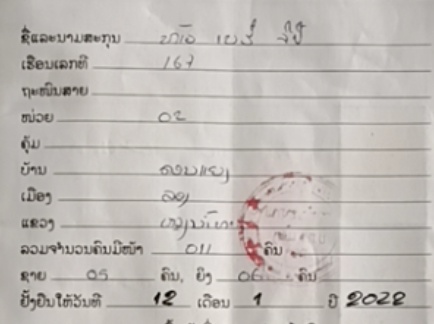 ຊື່ແລະນາມສະກຸນ ທ້າວ
ເຮືອນເລກທີ 167
ຖະໜົນສາຍ
ໜ່ວຍ 02
ຄຸ້ມ
ບ້ານ
ເມືອງ ລອງ
ແຂວງ ຫຼວງນ້ຳທາ
ລວມຈຳນວນຄົນມີໜ້າ 011 ຄົນ
ຊາຍ 05 ຄົນ, ຍິງ 06 ຄົນ
ຢັ້ງຢືນໃຫ້ວັນທີ 12 ເດືອນ 1 ປີ 2022